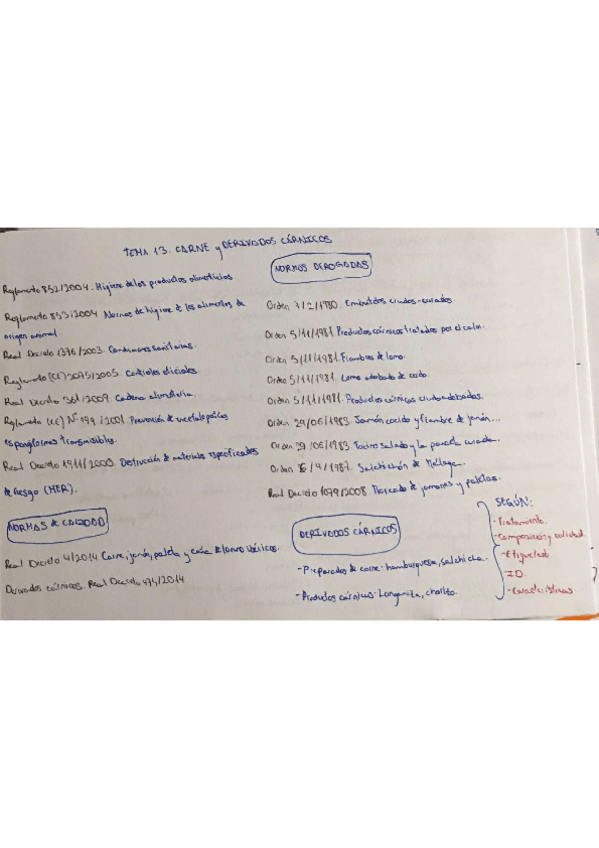 TEMA 13. CARNE y DERIVADOS CÁRNICOS
Reglamento 852/2004. Higiene de los productos alimenticios
Reglamento 853/2004 Normas de higiene de los alimentos de
origen animal.
Real Decreto 1376/2003. Condiciones sanitarias.
Reglamento (CE) 2075/2005. Controles oficiales.
Real Decreto 361/2009. Cadena alimentaria.
Reglamento (CE) Nº 999/2001. Prevención de encefalopatías
espongiformes transmisibles.
Real Decreto 1911/2000. Destrucción de materiales especificados
de riesgo (MER).
NORMAS DE CALIDAD
Real Decreto 4/2014 Carne, jamón, paleta y caña de lomo ibéricos.
Derivados cárnicos. Real Decreto 474/2014
NORMAS DEROGADAS
Orden 7/2/1980. Embutidos crudos-curados
Orden 5/11/1981 Productos cárnicos tratados por el calor.
Orden 5/11/1981. Fiambres de lomo.
Orden 5/11/1981. Lomo adobado de cerdo.
Orden 5/11/1981. Productos cárnicos crudos adobados.
Orden 29/06/1983. Jamón cocido y fiambre de jamón...
Orden 29/06/1983. Tocino salado y la panceta curada.
Orden /9/1987. Salchichón de Málaga.
Real Decreto 1079/2008 Marcado de jamones y paletas.
DERIVADOS CÁRNICOS
-Preparados de carne: hamburguesa, salchicha.
-Productos cárnicos: Longaniza, chorizo.
SEGÚN:
-Tratamiento.
-Composición y calidad.
-Etiquetado
ID.
-Características